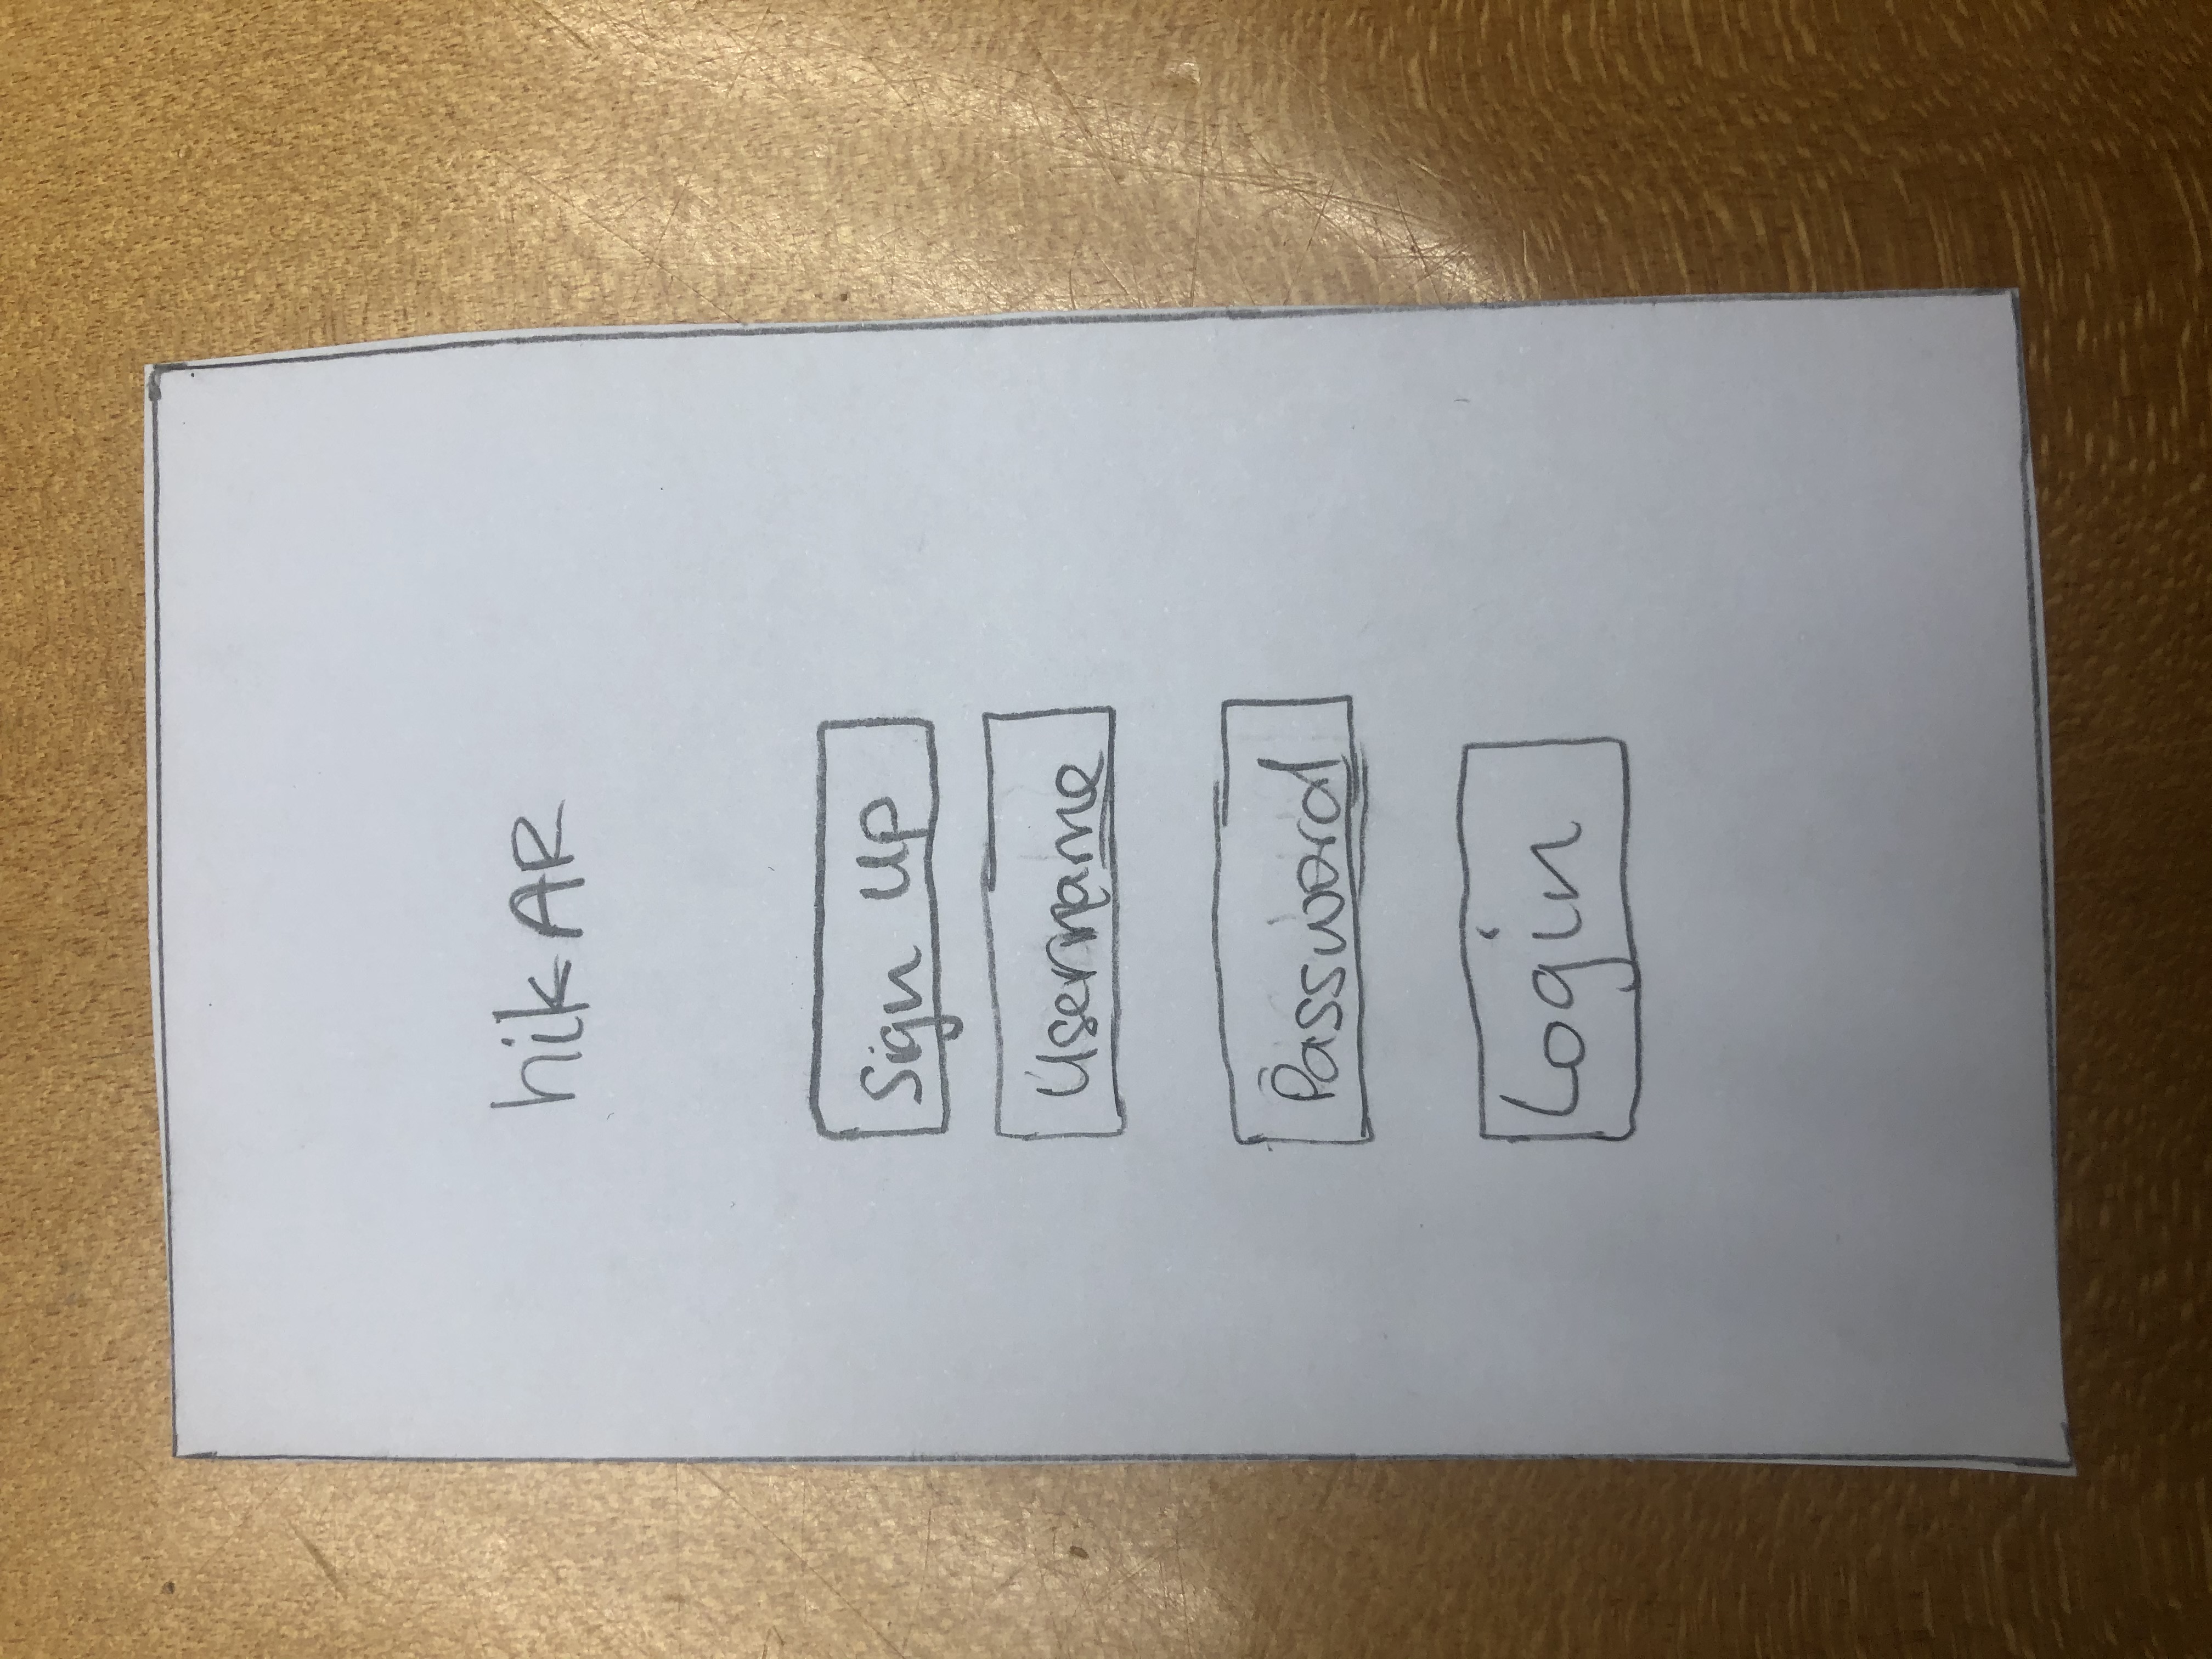 hikAR
Sign Up
Username
Password
Login